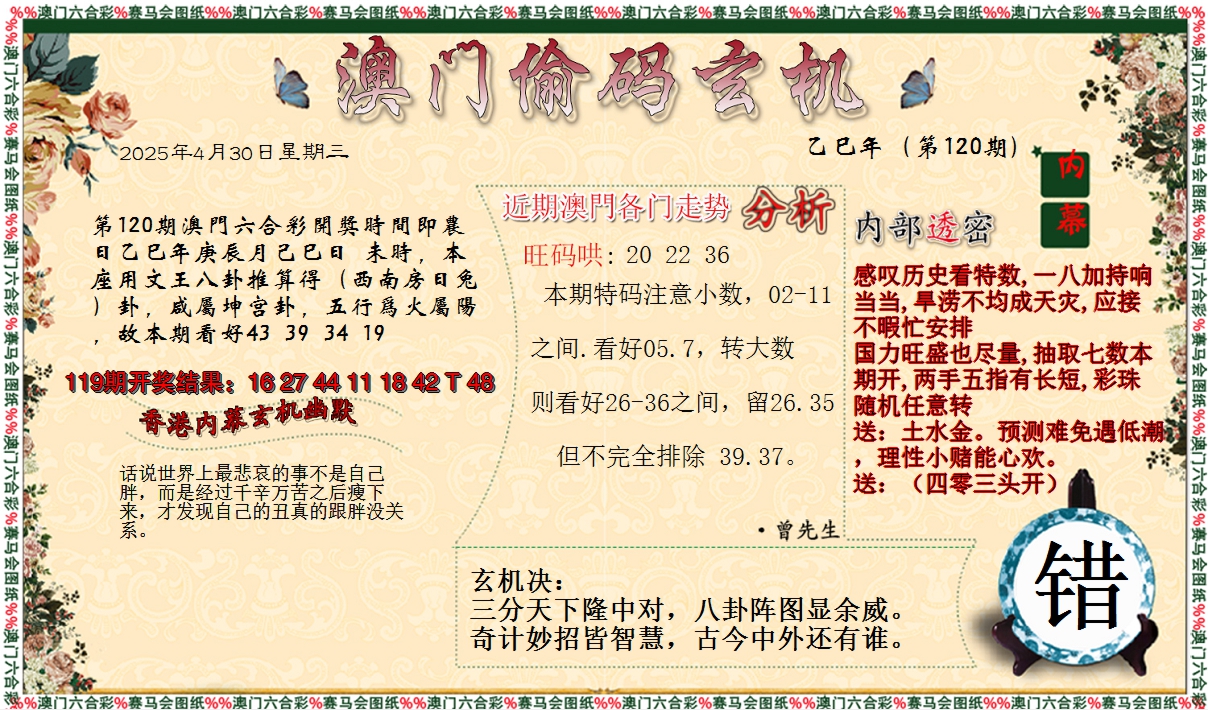 %%澳门六合彩%赛马会图纸%%澳门六合彩%赛马会图纸%%澳门六合彩%赛马会图纸%%澳门六合彩%赛马会图纸%%澳门六合彩%赛马会图纸%%澳门六合彩%赛马会图纸%%
澳门偷码玄机
2025年4月30日星期三
乙巳年（第120期）
内
幕
第120期澳門六合彩開獎時間即農
日乙巳年庚辰月己巳日 未時，本
座用文王八卦推算得（西南房日兔
）卦，咸屬坤宫卦，五行爲火屬陽
，故本期看好43 39 34 19
119期开奖结果：16 27 44 11 18 42 T 48
香港内幕玄机幽默
话说世界上最悲哀的事不是自己
胖，而是经过千辛万苦之后瘦下
来，才发现自己的丑真的跟胖没关
系。
近期澳門各门走势 分析
旺码哄: 20 22 36
本期特码注意小数，02-11
之间.看好05.7，转大数
则看好26-36之间，留26.35
但不完全排除 39.37。
·曾先生
内部透密
感叹历史看特数,一八加持响
当当,旱涝不均成天灾,应接
不暇忙安排
国力旺盛也尽量,抽取七数本
期开,两手五指有长短,彩珠
随机任意转
送：土水金。预测难免遇低潮
，理性小赌能心欢。
送：（四零三头开）
玄机决：
三分天下隆中对，八卦阵图显余威。
奇计妙招皆智慧，古今中外还有谁。
错
%%澳门六合彩%赛马会图纸%%澳门六合彩%赛马会图纸%%澳门六合彩%赛马会图纸%%澳门六合彩%赛马会图纸%%澳门六合彩%赛马会图纸%%澳门六合彩%赛马会图纸%%